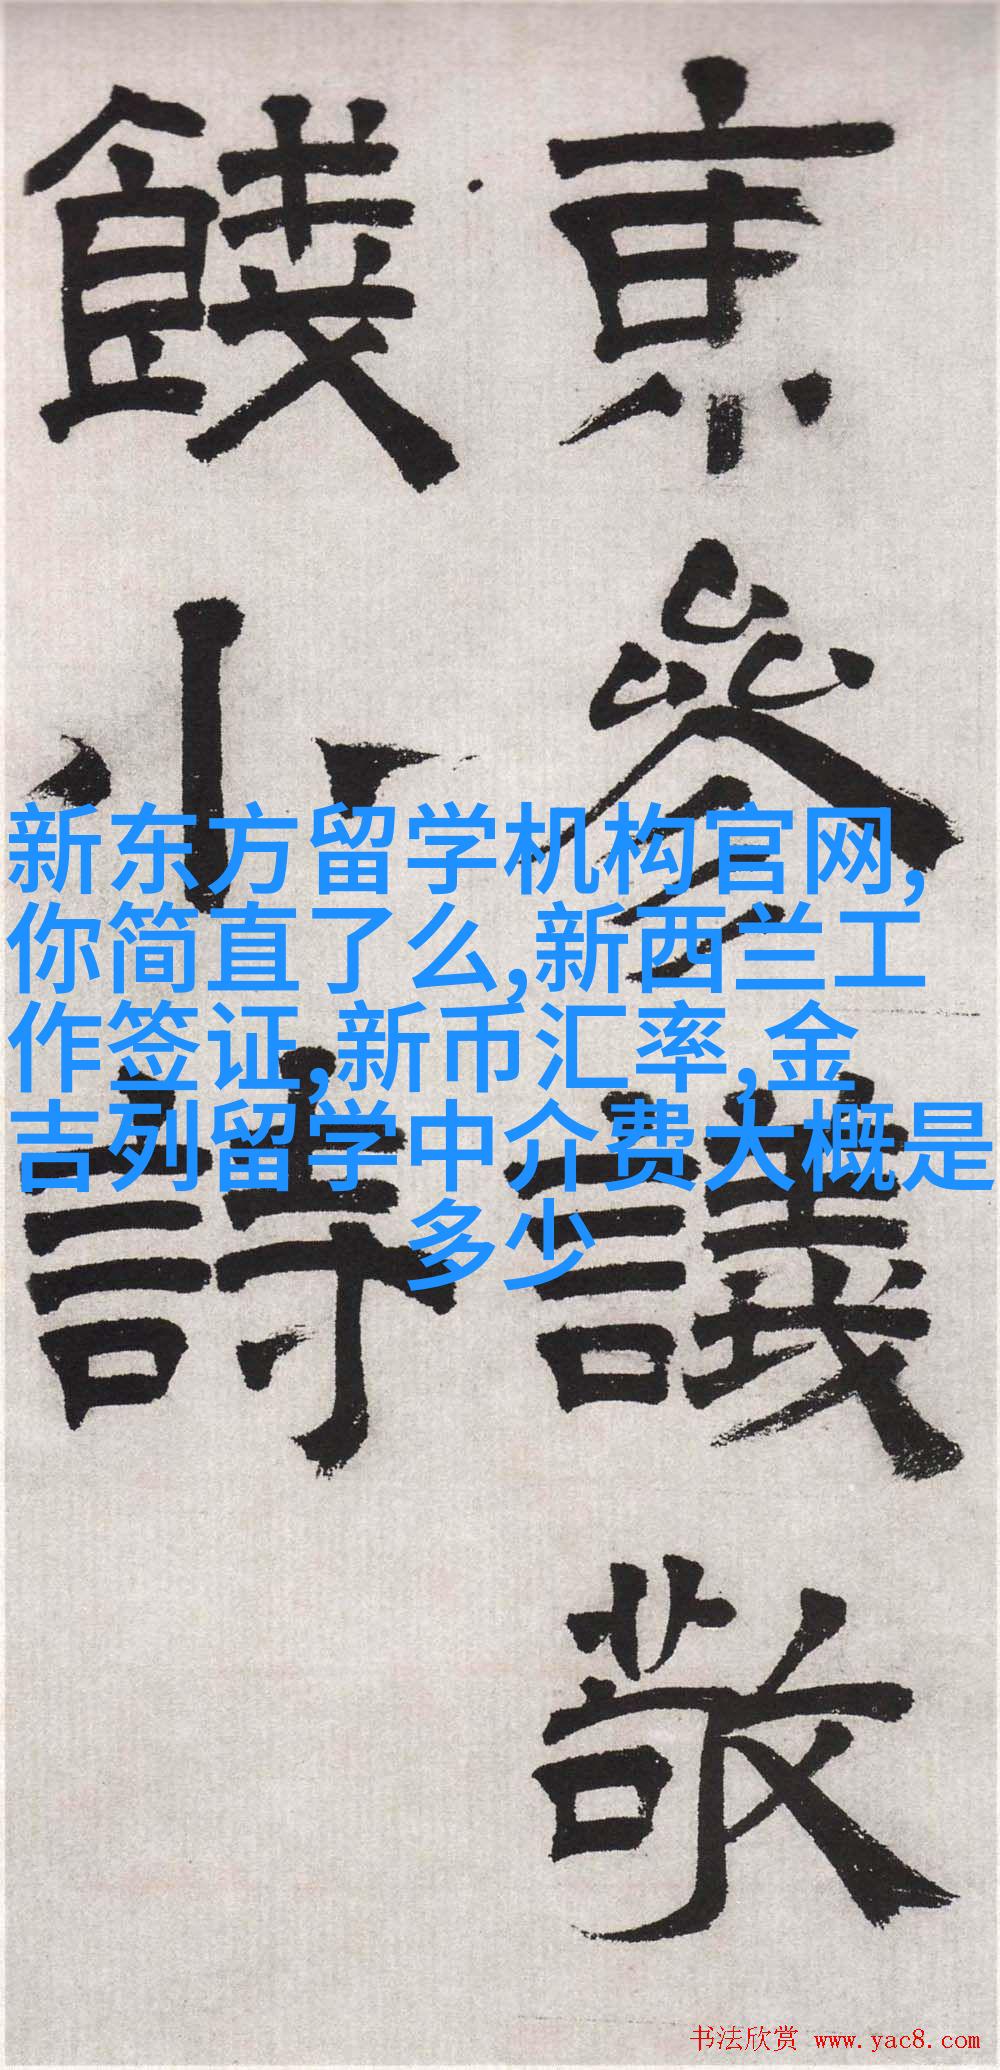 京參議敬
餞小詩
新东方留学机构官网,
你简直了么,新西兰工
作签证,新币汇率,金
吉列留学中介费大概是
多少
书法欣赏 www.yac8.com